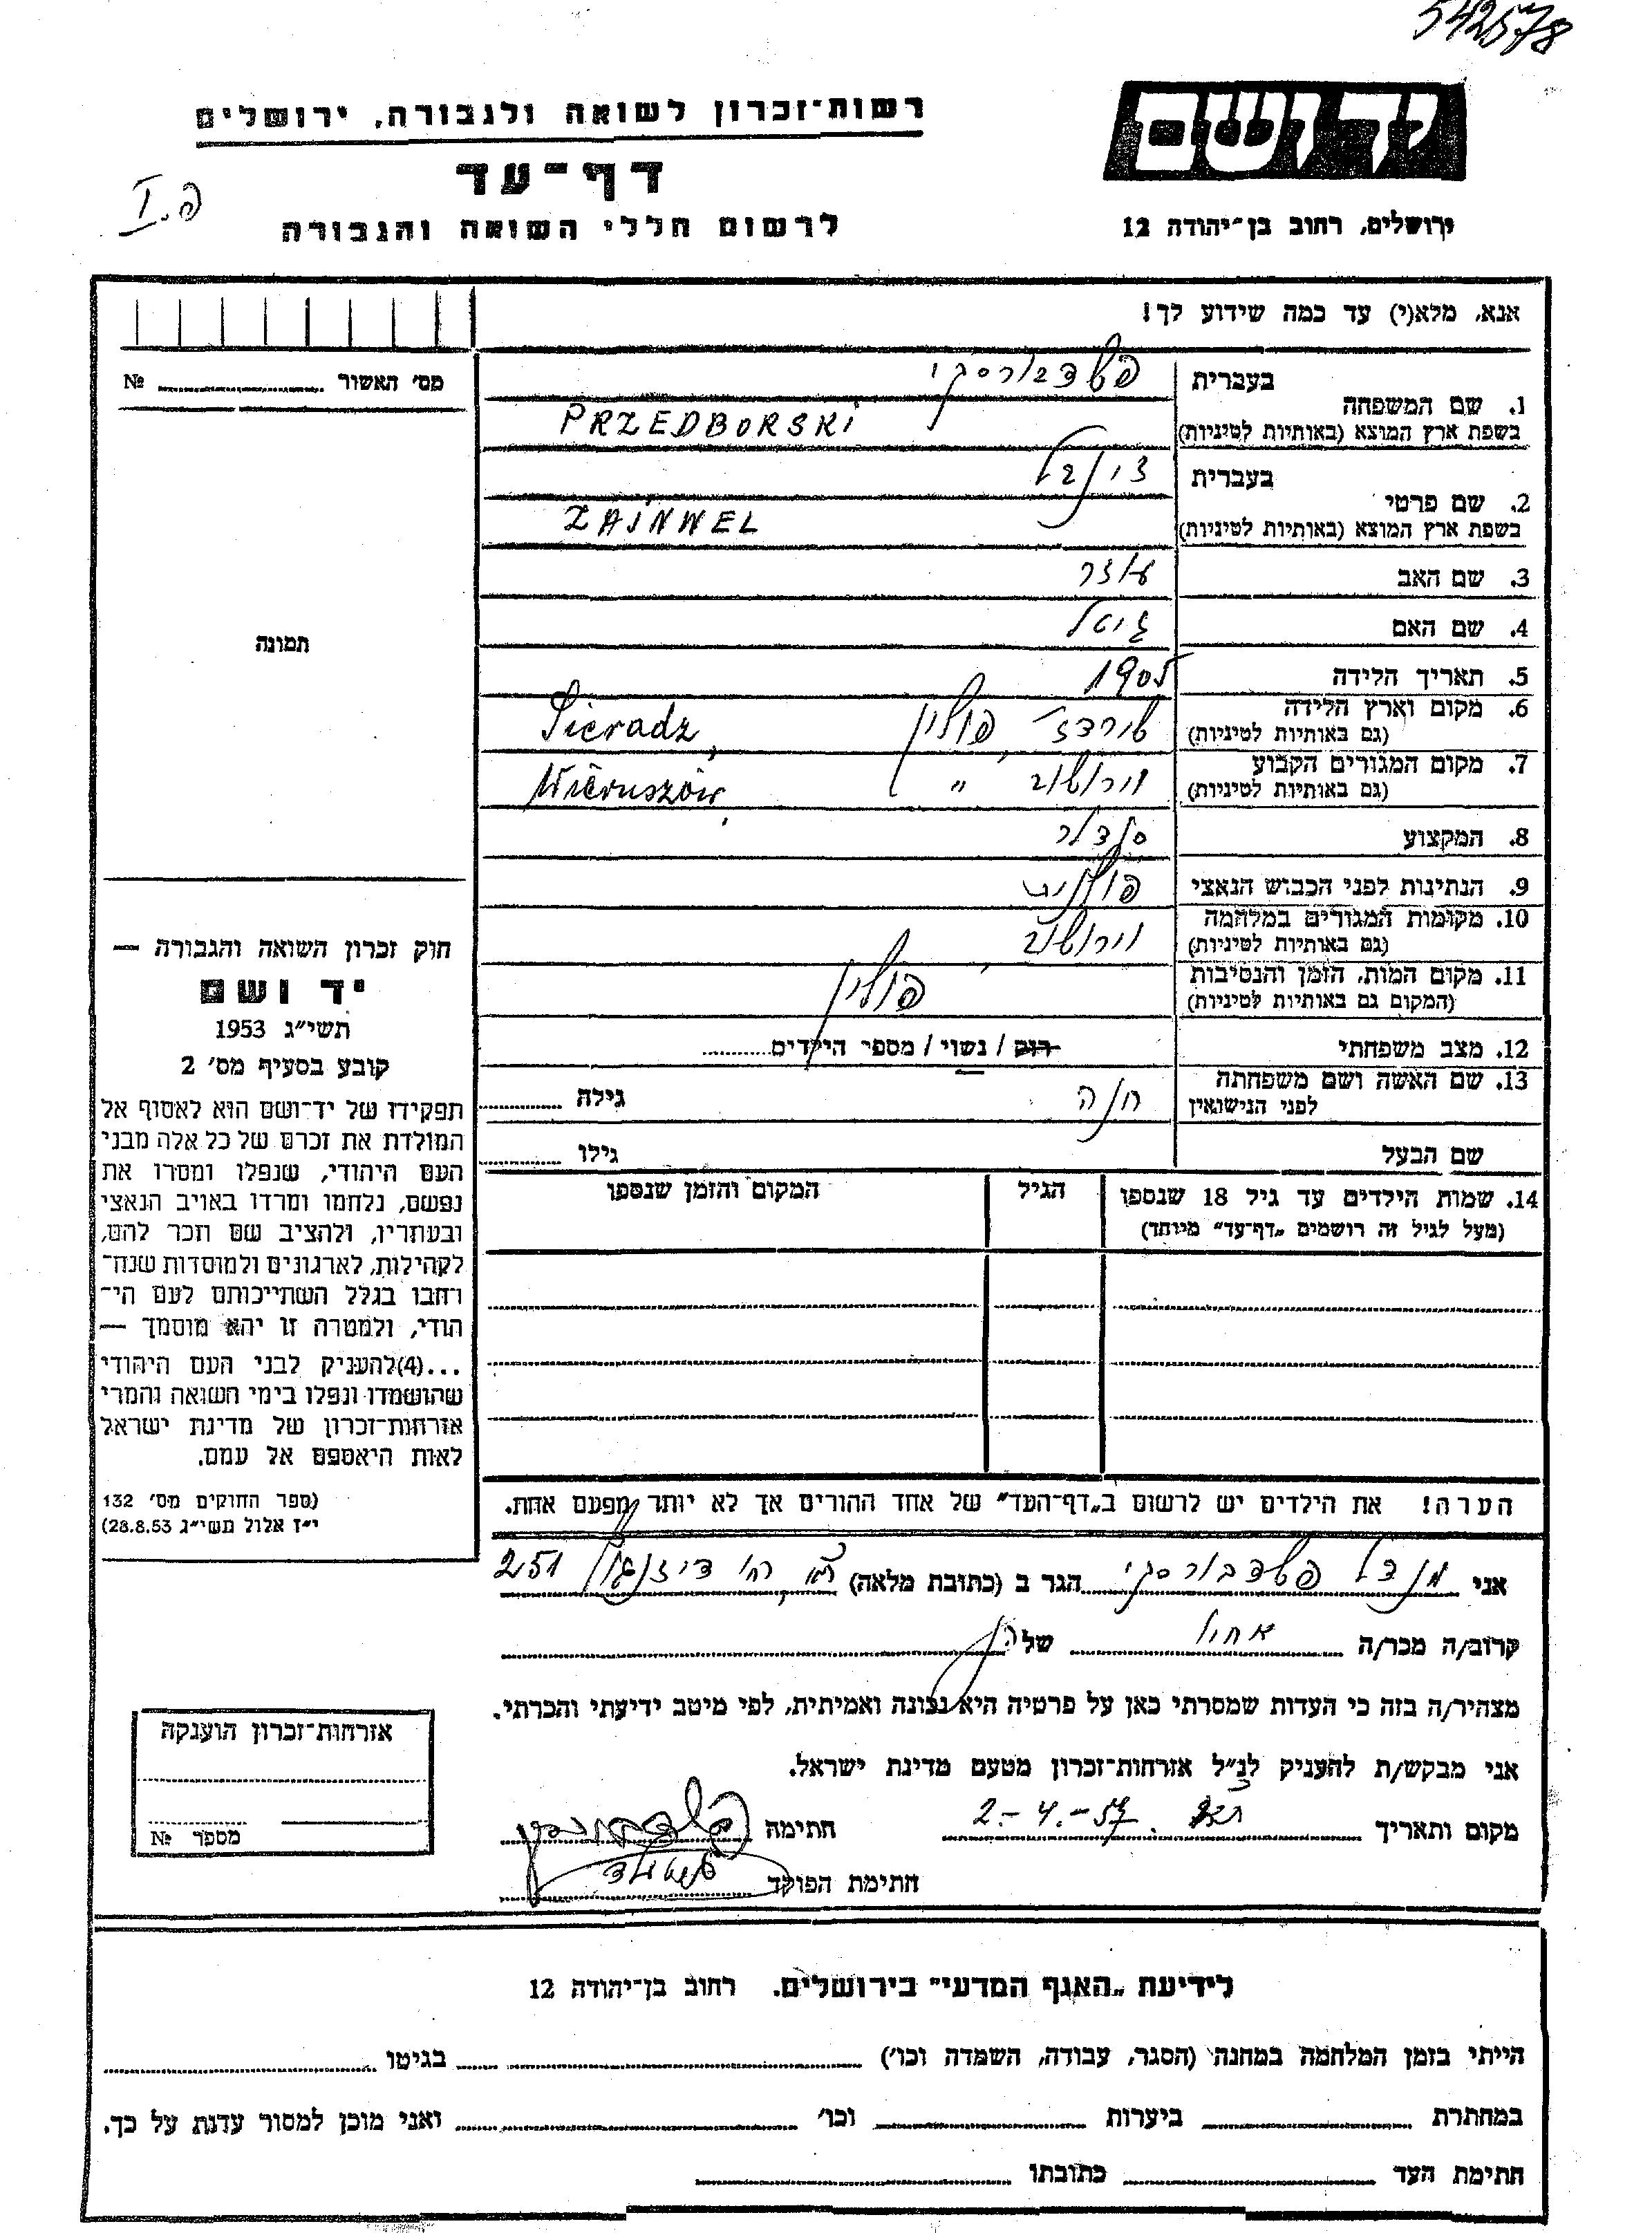 542578
יד ושם
רשות־זכרון לשואה ולגבורה, ירושלים
דף־עד
I.פ
לרשום חללי השואה והגבורה
ירושלים, רחוב בן־יהודה 12
אנא, מלא(י) עד כמה שידוע לך!
מס׳ האשור № ..........
תמונה
1. שם המשפחה
בעברית פשדבורסקי
בשפת ארץ המוצא (באותיות לטיניות) PRZEDBORSKI
2. שם פרטי
בעברית זינבל
בשפת ארץ המוצא (באותיות לטיניות) ZAINWEL
3. שם האב
4. שם האם גיטל
5. תאריך הלידה 1905
6. מקום וארץ הלידה שירדז, פולין Sieradz,
(גם באותיות לטיניות)
7. מקום המגורים הקבוע וירושוב " Wieruszów,
(גם באותיות לטיניות)
8. המקצוע סנדלר
9. הנתינות לפני הכבוש הנאצי פולנית
10. מקומות המגורים במלחמה וירושוב
(גם באותיות לטיניות)
11. מקום המות, הזמן והנסיבות פולין
(המקום גם באותיות לטיניות)
12. מצב משפחתי רוק / נשוי / מספר הילדים..........
13. שם האשה ושם משפחתה חנה גילה ..........
לפני הנישואין
שם הבעל גילו ..........
14. שמות הילדים עד גיל 18 שנספו הגיל המקום והזמן שנספו
(מעל לגיל זה רושמים „דף־עד" מיוחד)
הערה! את הילדים יש לרשום ב„דף־העד" של אחד ההורים אך לא יותר מפעם אחת.
חוק זכרון השואה והגבורה —
יד ושם
תשי״ג 1953
קובע בסעיף מס׳ 2
תפקידו של יד־ושם הוא לאסוף אל
המולדת את זכרם של כל אלה מבני
העם היהודי, שנפלו ומסרו את
נפשם, נלחמו ומרדו באויב הנאצי
ובעוזריו, ולהציב שם וזכר להם,
לקהילות, לארגונים ולמוסדות שנח־
רבו בגלל השתייכותם לעם הי־
הודי, ולמטרה זו יהא מוסמך —
...(4)להעניק לבני העם היהודי
שהושמדו ונפלו בימי השואה והמרי
אזרחות־זכרון של מדינת ישראל
לאות היאספם אל עמם.
(ספר החוקים מס׳ 132
י״ז אלול תשי״ג 28.8.53)
אני מנדל פשדבורסקי הגר ב (כתובת מלאה) ת״א, רח׳ דיזנגוף 251
קרוב/ה מכר/ה אחיו של הנ״ל
מצהיר/ה בזה כי העדות שמסרתי כאן על פרטיה היא נכונה ואמיתית, לפי מיטב ידיעתי והכרתי.
אני מבקש/ת להעניק לנ״ל אזרחות־זכרון מטעם מדינת ישראל.
מקום ותאריך 2.-4.-57 חתימה
חתימת הפוקד
אזרחות־זכרון הוענקה
מספר №
לידיעת „האגף המדעי" בירושלים, רחוב בן־יהודה 12
הייתי בזמן המלחמה במחנה (הסגר, עבודה, השמדה וכו׳) .......... בגיטו ..........
במחתרת .......... ביערות .......... וכו׳ .......... ואני מוכן למסור עדות על כך.
חתימת העד .......... כתובתו ..........